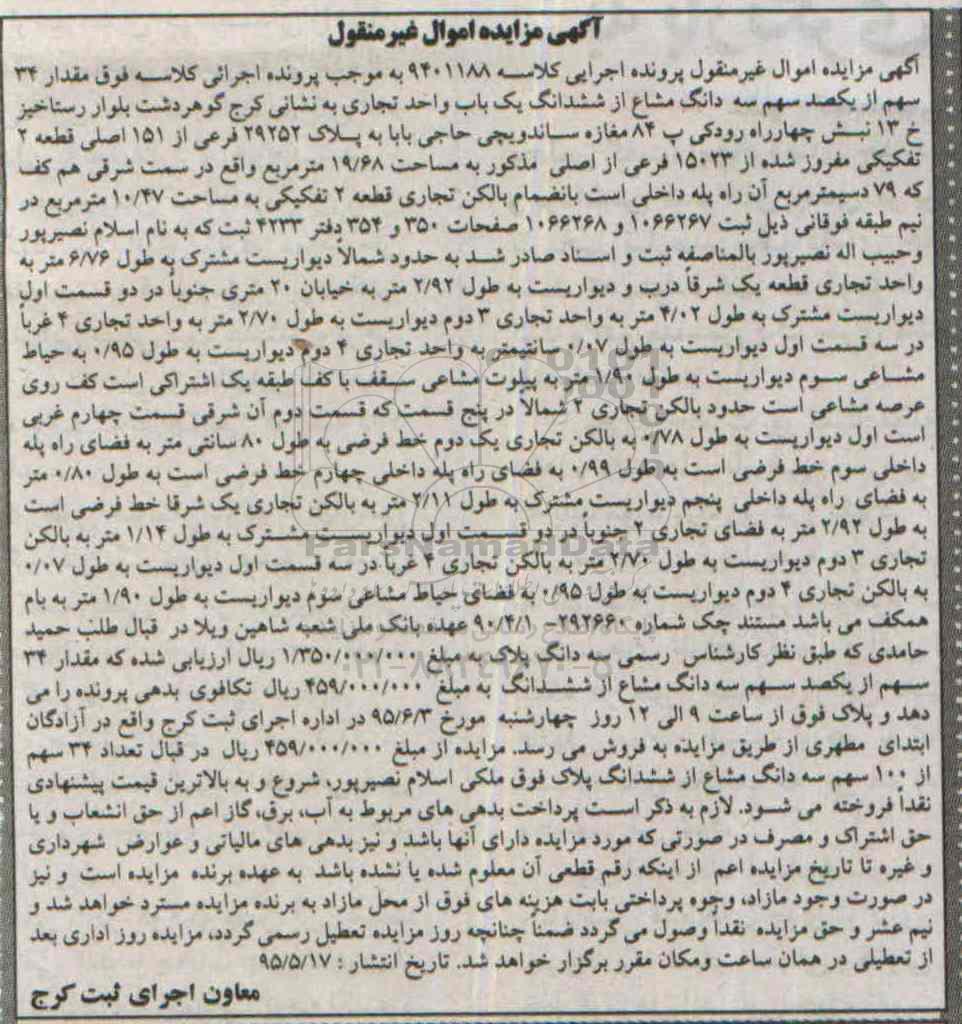 آگهی مزایده اموال غیرمنقول
آگهی مزایده اموال غیرمنقول پرونده اجرایی کلاسه ۹۴۰۱۱۸۸ به موجب پرونده اجرائی کلاسه فوق مقدار ۳۴
سهم از یکصد سهم سه دانگ مشاع از ششدانگ یک باب واحد تجاری به نشانی کرج گوهردشت بلوار رستاخیز
خ ۱۳ نبش چهارراه رودکی پ ۸۴ مغازه ساندویچی حاجی بابا به پلاک ۲۹۲۵۲ فرعی از ۱۵۱ اصلی قطعه ۲
تفکیکی مفروز شده از ۱۵۰۲۳ فرعی از اصلی مذکور به مساحت ۱۹/۶۸ مترمربع واقع در سمت شرقی هم کف
که ۷۹ دسیمترمربع آن راه پله داخلی است بانضمام بالکن تجاری قطعه ۲ تفکیکی به مساحت ۱۰/۴۷ مترمربع در
نیم طبقه فوقانی ذیل ثبت ۱۰۶۶۲۶۷ و ۱۰۶۶۲۶۸ صفحات ۳۵۰ و ۳۵۴ دفتر ۴۲۳۳ ثبت که به نام اسلام نصیرپور
وحبیب اله نصیرپور بالمناصفه ثبت و اسناد صادر شد به حدود شمالاً دیواریست مشترک به طول ۶/۷۶ متر به
واحد تجاری قطعه یک شرقاً درب و دیواریست به طول ۲/۹۲ متر به خیابان ۲۰ متری جنوباً در دو قسمت اول
دیواریست مشترک به طول ۴/۰۲ متر به واحد تجاری ۳ دوم دیواریست به طول ۲/۷۰ متر به واحد تجاری ۴ غرباً
در سه قسمت اول دیواریست به طول ۰/۰۷ سانتیمتر به واحد تجاری ۴ دوم دیواریست به طول ۰/۹۵ به حیاط
مشاعی سوم دیواریست به طول ۱/۹۰ متر به پیلوت مشاعی سقف با کف طبقه یک اشتراکی است کف روی
عرصه مشاعی است حدود بالکن تجاری ۲ شمالاً در پنج قسمت که قسمت دوم آن شرقی قسمت چهارم غربی
است اول دیواریست به طول ۰/۷۸ به بالکن تجاری یک دوم خط فرضی به طول ۸۰ سانتی متر به فضای راه پله
داخلی سوم خط فرضی است به طول ۰/۹۹ به فضای راه پله داخلی چهارم خط فرضی است به طول ۰/۸۰ متر
به فضای راه پله داخلی پنجم دیواریست مشترک به طول ۲/۱۱ متر به بالکن تجاری یک شرقا خط فرضی است
به طول ۲/۹۲ متر به فضای تجاری ۲ جنوباً در دو قسمت اول دیواریست مشترک به طول ۱/۱۴ متر به بالکن
تجاری ۳ دوم دیواریست به طول ۲/۷۰ متر به بالکن تجاری ۴ غرباً در سه قسمت اول دیواریست به طول ۰/۰۷
به بالکن تجاری ۴ دوم دیواریست به طول ۰/۹۵ به فضای حیاط مشاعی سوم دیواریست به طول ۱/۹۰ متر به بام
همکف می باشد مستند چک شماره ۲۹۲۶۶۰- ۹۰/۴/۱ عهده بانک ملی شعبه شاهین ویلا در قبال طلب حمید
حامدی که طبق نظر کارشناس رسمی سه دانگ پلاک به مبلغ ۱/۳۵۰/۰۰۰/۰۰۰ ریال ارزیابی شده که مقدار ۳۴
سهم از یکصد سهم سه دانگ مشاع از ششدانگ به مبلغ ۴۵۹/۰۰۰/۰۰۰ ریال تکافوی بدهی پرونده را می
دهد و پلاک فوق از ساعت ۹ الی ۱۲ روز چهارشنبه مورخ ۹۵/۶/۳ در اداره اجرای ثبت کرج واقع در آزادگان
ابتدای مطهری از طریق مزایده به فروش می رسد. مزایده از مبلغ ۴۵۹/۰۰۰/۰۰۰ ریال در قبال تعداد ۳۴ سهم
از ۱۰۰ سهم سه دانگ مشاع از ششدانگ پلاک فوق ملکی اسلام نصیرپور، شروع و به بالاترین قیمت پیشنهادی
نقداً فروخته می شود. لازم به ذکر است پرداخت بدهی های مربوط به آب، برق، گاز اعم از حق انشعاب و یا
حق اشتراک و مصرف در صورتی که مورد مزایده دارای آنها باشد و نیز بدهی های مالیاتی و عوارض شهرداری
و غیره تا تاریخ مزایده اعم از اینکه رقم قطعی آن معلوم شده یا نشده باشد به عهده برنده مزایده است و نیز
در صورت وجود مازاد، وجوه پرداختی بابت هزینه های فوق از محل مازاد به برنده مزایده مسترد خواهد شد و
نیم عشر و حق مزایده نقداً وصول می گردد ضمناً چنانچه روز مزایده تعطیل رسمی گردد، مزایده روز اداری بعد
از تعطیلی در همان ساعت ومکان مقرر برگزار خواهد شد. تاریخ انتشار : ۹۵/۵/۱۷
معاون اجرای ثبت کرج
ParsNamadData